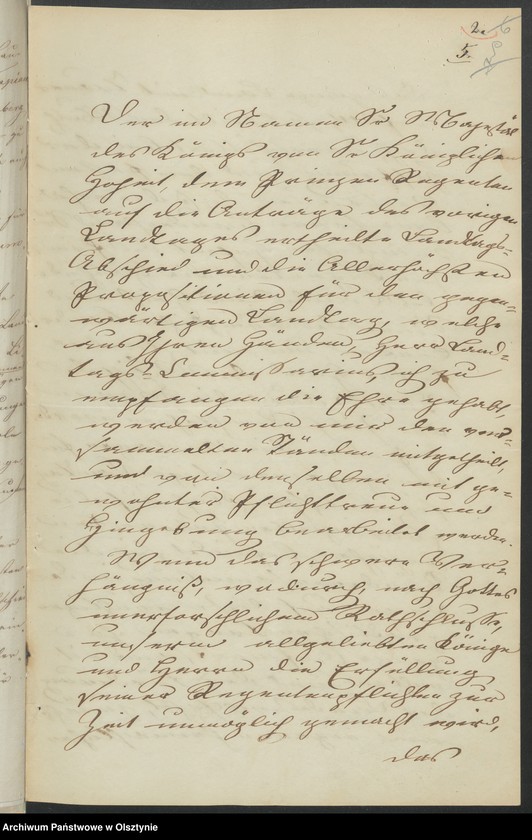 2.
5.
Der im Namen Sr. Majestät
des Königs von Sr. Königlichen
Hoheit dem Prinzen Regenten
auf die Anträge des vorigen
Landtages ertheilte Landtags-
Abschied und die Allerhöchsten
Propositionen für den gegen-
wärtigen Landtag, welche
aus Ihren Händen, Herr Land-
tags-Commissarius, ich zu
empfangen die Ehre gehabt,
werden von mir den ver-
sammelten Ständen mitgetheilt,
und von denselben mit ge-
wohnter Pflichttreue und
Hingebung bearbeitet werden.
Wenn das schwere Ver-
hängniß, wodurch, nach Gottes
unerforschlichem Rathschlusse,
unserm allgeliebten Könige
und Herrn die Erfüllung
seiner Regentenpflichten zur
Zeit unmöglich gemacht wird,
das
Archiwum Państwowe w Olsztynie